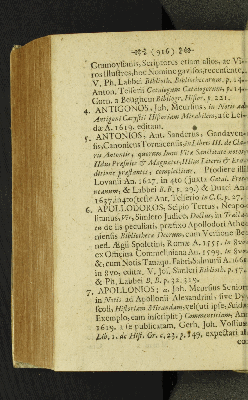 (916)
Gramoyſianis, Scriptores etiam alios, ac Vi-
ros Illuſtres, hoc Nomine gaviſos, recenſente,
V. Ph. Labbei Biblioth. Bibliothecarum, p.
Anton. Teiſſerii Catalogum Catalogorum, p.
Cum. a Beughem Bibliogr. Hiſtor. p. 221.
4. ANTIGONUS, Joh. Meurſius, in Notis ad
Antigoni Caryſtii Hiſtoriam Mirabilem, a ſe Lei-
dæ A. 1619. editam.
5. ANTONIUS, Ant. Sanderus, Gandaven-
ſis, Canonicus Tornacenſis, in Libris III. de Cla-
ris Antoniis, quorum Iᵐᵘˢ Vitæ Sanctitate notos,
IIdus Præſules & Magnates, IIItius Literis & Eru-
ditione præſtantes, complectitur. Prodiere illi
Lovanii An. 1627. in 4to (juxta Catal. Fran-
ceanum, & Labbei B. B. p. 29.) & Duaci Ann.
1637. in 4to (teſte Ant. Teiſſerio in C. C. p. 27.)
6. APOLLODORUS, Scipio Tettus, Neapo-
litanus, Vir, Simlero Judice, Doctus, in Tractatu
de iis peculiari, præfixo Apollodori Athe-
nienſis Bibliotheca Deorum, cum Verſione Be-
ned. Ægii Spoletini, Romæ A. 1555. in 8vo
ex Officina Commeliniana An. 1599. in 8vo
&, cum Notis Tanaqu. Fabri Salmurii A. 1661.
in 8vo, editæ. V. Joſ. Simleri Biblioth. p.
& Ph. Labbei B. B. p. 32. 319.
7. APOLLONIUS; a. Joh. Meurſius Senior
in Notis ad Apollonii Alexandrini, ſive Dy-
ſcoli, Hiſtoriam Mirandam, vel (uti ipſe, Suidæ
Exemplo, eam inſcripſit) Commentitiam, An.
1619. a ſe publicatam, Gerh. Joh. Voſſius
Lib. 1. de Hiſt. Gr. c. 23. p. 849, expectari al-